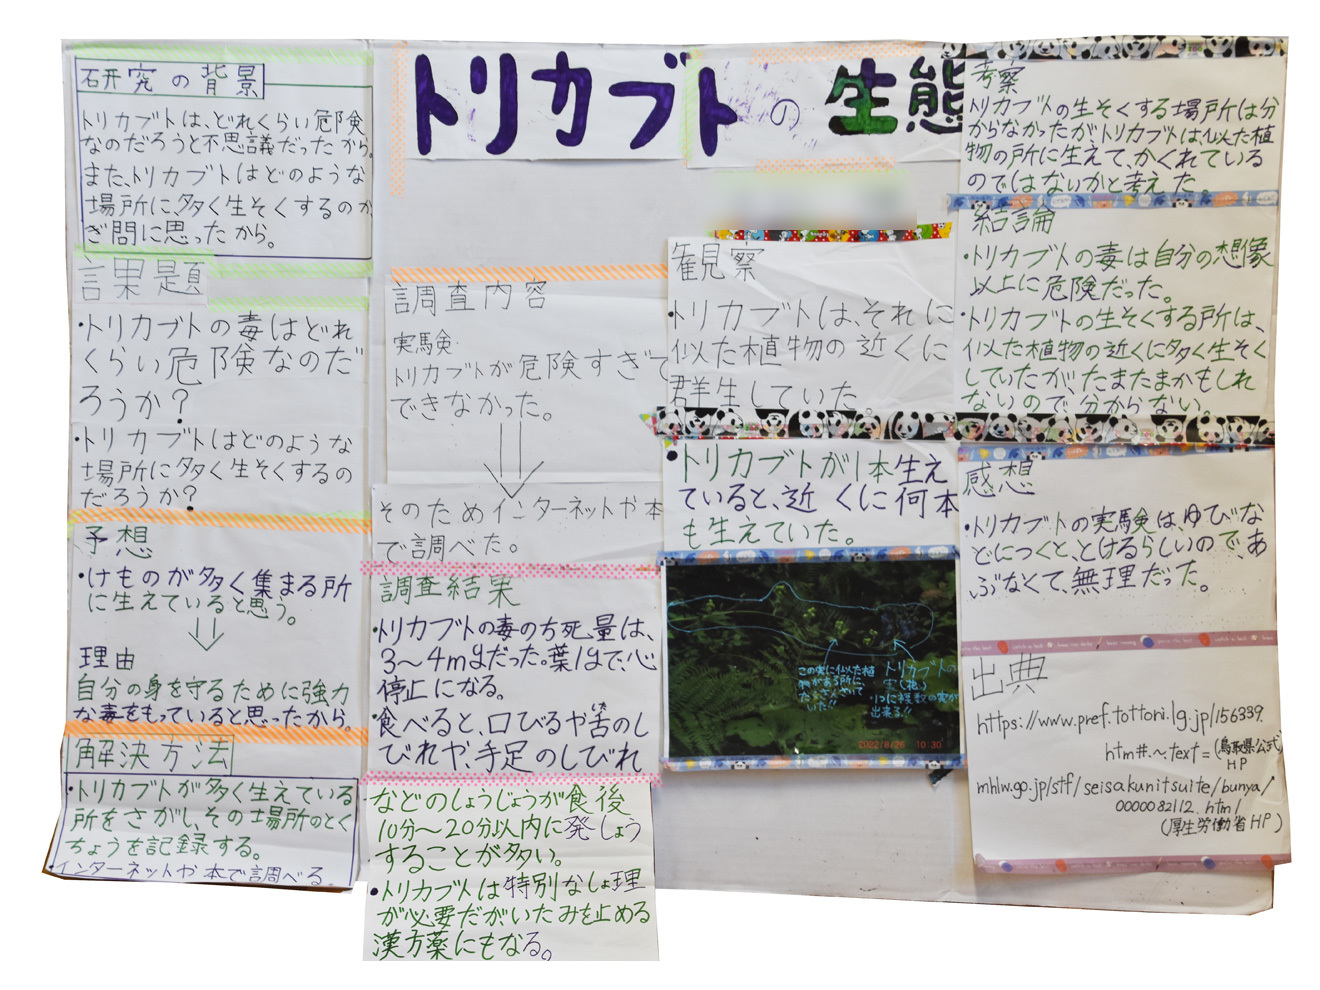 トリカブトの生態
研究の背景
トリカブトは、どれくらい危険
なのだろうと不思議だったから。
また、トリカブトはどのような
場所に、多く生そくするのか
ぎ問に思ったから。
課題
・トリカブトの毒はどれ
くらい危険なのだ
ろうか？
・トリカブトはどのような
場所に多く生そくするの
だろうか？
予想
・けものが多く集まる所
に生えていると思う。
理由
自分の身を守るために強力
な毒をもっていると思ったから。
解決方法
・トリカブトが多く生えている
所をさがし、その場所のとく
ちょうを記録する。
・インターネットや本で調べる。
調査内容
実験
トリカブトが危険すぎて
できなかった。
そのためインターネットや本
で調べた。
調査結果
・トリカブトの毒のち死量は、
3〜4mgだった。葉1gで、心
停止になる。
・食べると、口びるや舌のし
びれや、手足のしびれ
などのしょうじょうが食後
10分〜20分以内に発しょう
することが多い。
・トリカブトは特別なしょ理
が必要だがいたみを止める
漢方薬にもなる。
観察
・トリカブトは、それに
似た植物の近くに
群生していた。
・トリカブトが1本生え
ていると、近くに何本
も生えていた。
この実に似た植
物がある所に、
たくさんさいて
いた!!
トリカブトの
実(抱)
・1つに複数の実が
出来る!!
2022/8/26 10:30
考察
トリカブトの生そくする場所は分
からなかったがトリカブトは、似た植
物の所に生えて、かくれている
のではないかと考えた。
結論
・トリカブトの毒は自分の想像
以上に危険だった。
・トリカブトの生そくする所は、
似た植物の近くに多く生そく
していたが、たまたまかもしれ
ないので、分からない。
感想
・トリカブトの実験は、ゆびな
どにつくと、とけるらしいので、あ
ぶなくて、無理だった。
出典
https://www.pref.tottori.lg.jp/156339.
htm#:~text=(鳥取県公式
HP
mhlw.go.jp/stf/seisakunitsuite/bunya/
0000082112.html
(厚生労働省HP)